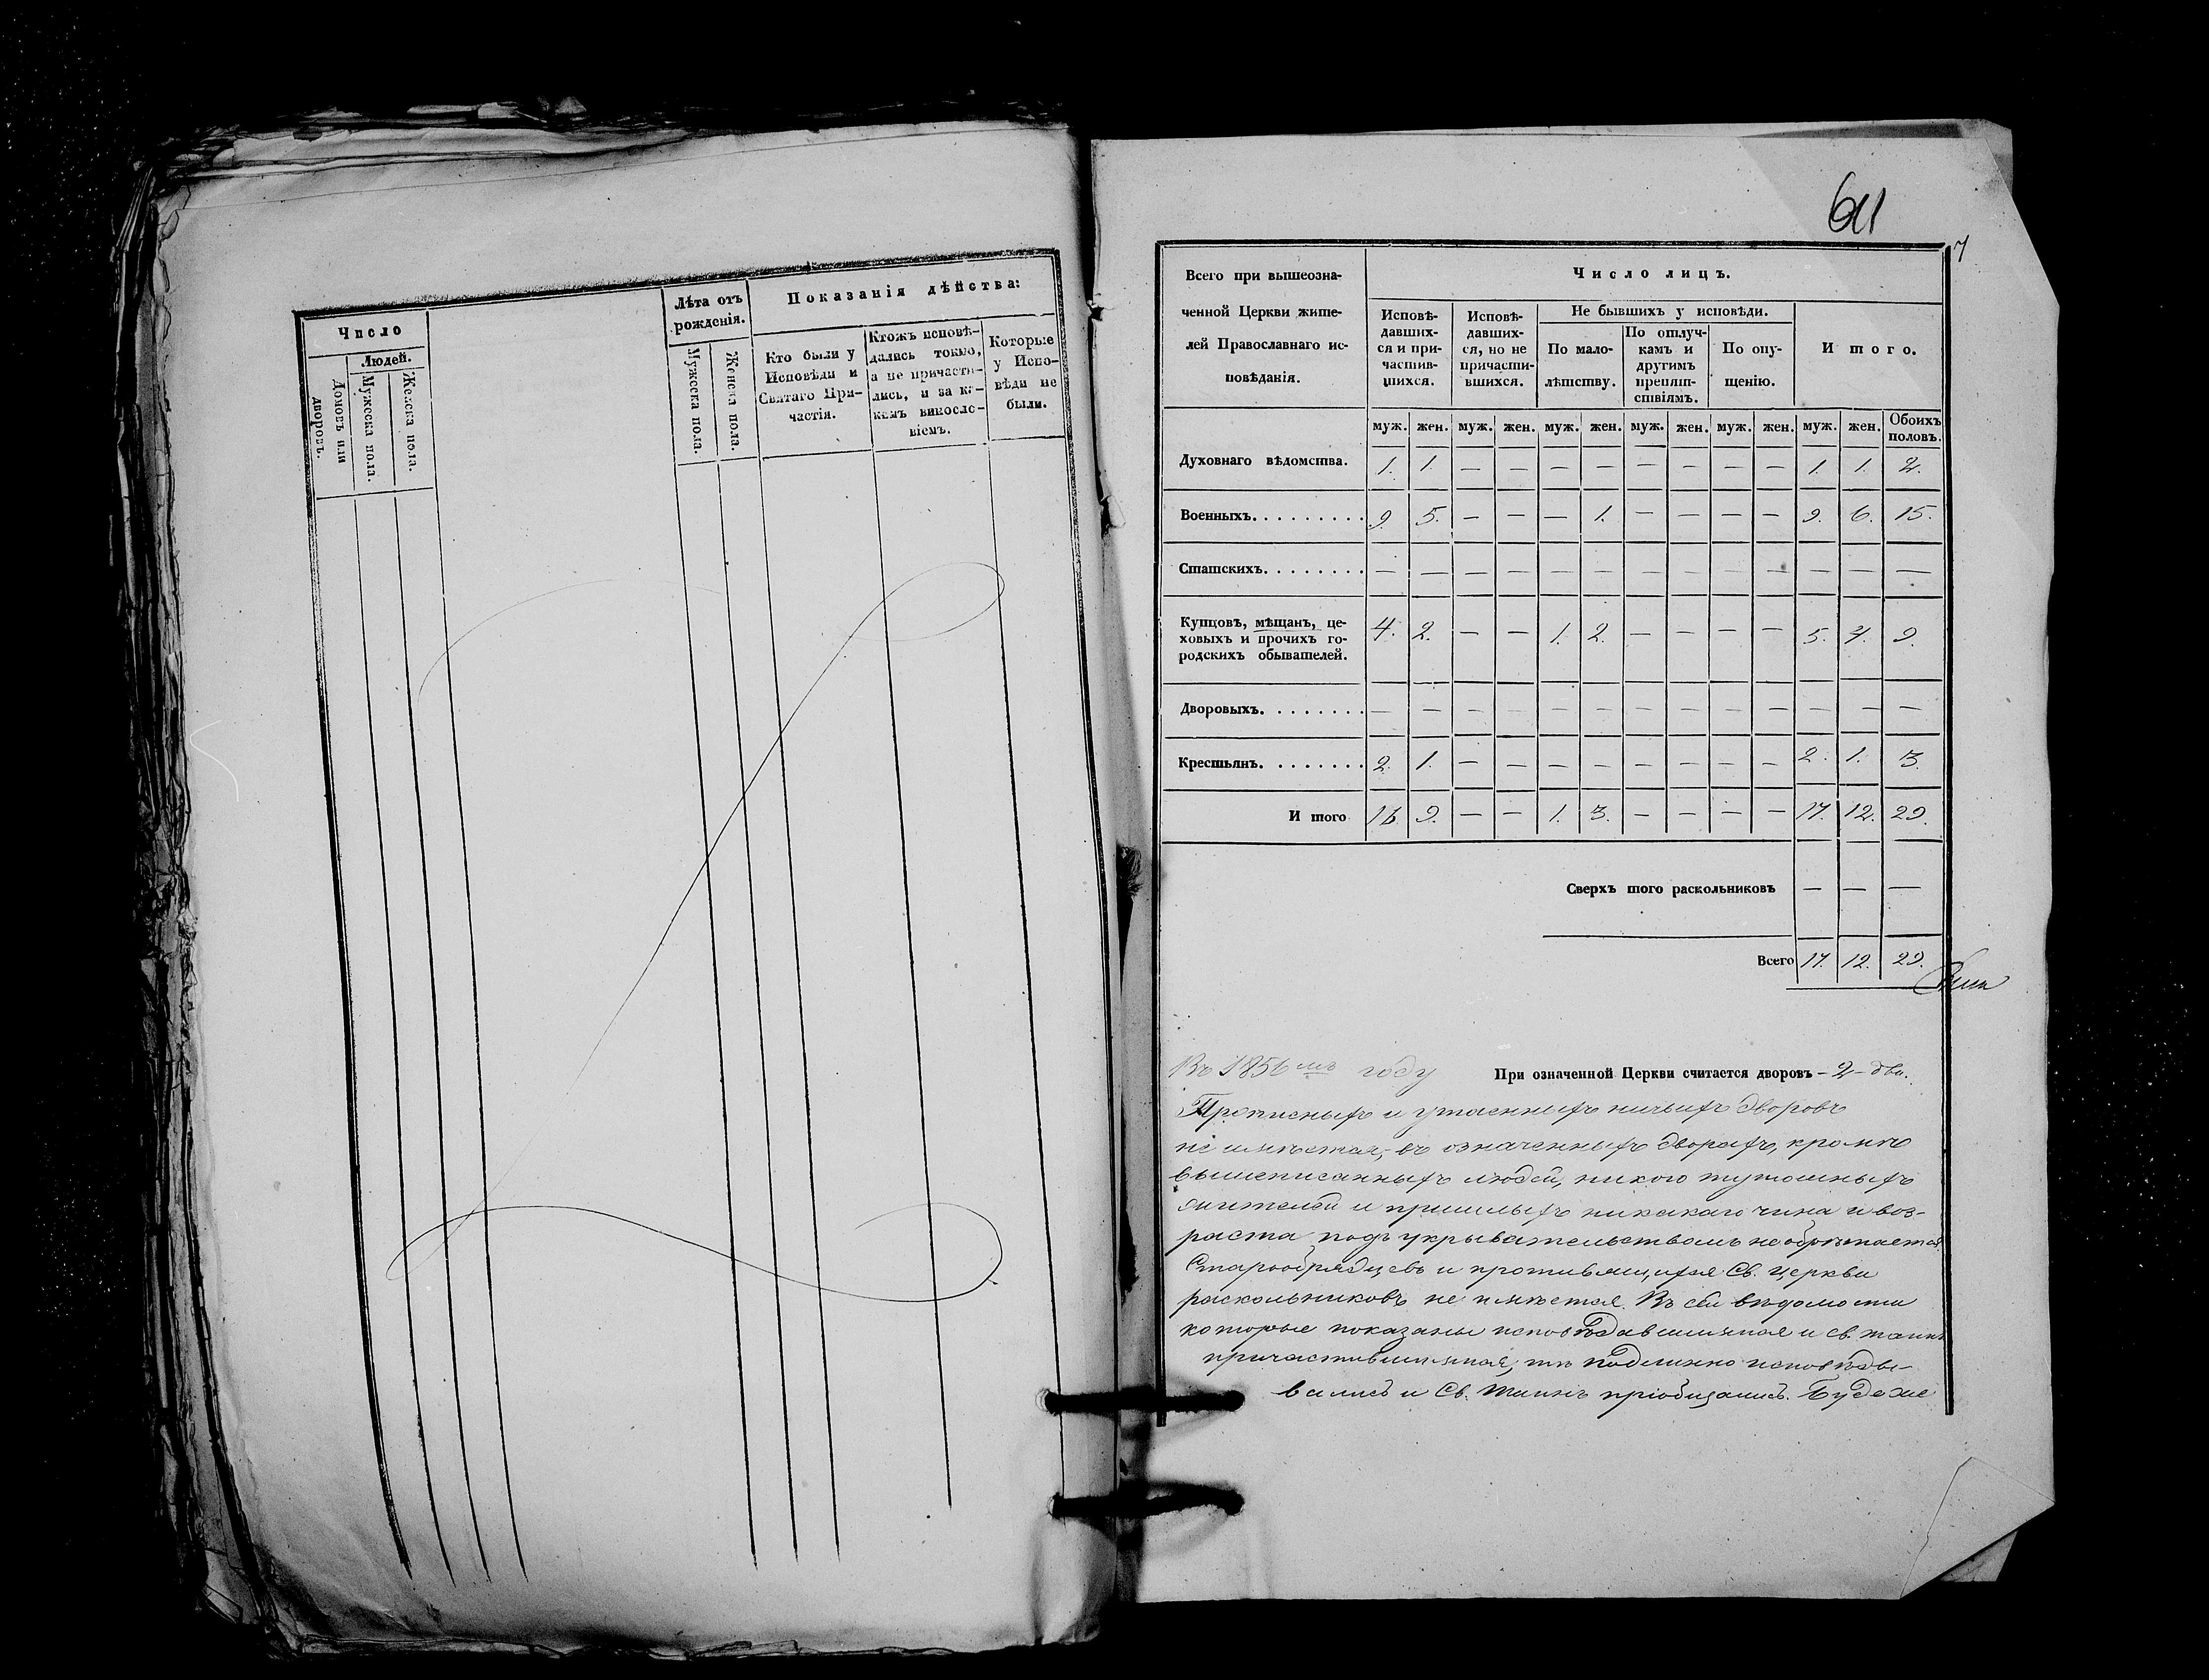 Число
Людей.
Домовъ или дворовъ.
Мужеска пола.
Женска пола.
Лѣта отъ
рожденія.
Мужеска пола.
Женска пола.
Показанія дѣйства:
Кто были у
Исповѣди и
Святаго При-
частія.
Ктожъ исповѣ-
дались токмо,
а не причасти-
лись, и за ка-
кимъ винсло-
віемъ.
Которые
у Испо-
вѣди не
были.
611
7
Всего при вышеозна-
ченной Церкви жите-
лей Православнаго ис-
повѣданія.
Число лицъ.
Исповѣ-
давших-
ся и при-
частив-
шихся.
Исповѣ-
давших-
ся, но не
причасти-
вшихся.
Не бывшихъ у исповѣди.
По мало-
лѣтству.
По отлуч-
камъ и
другимъ
препят-
ствіямъ.
По опу-
щенію.
И того.
муж. жен. муж. жен. муж. жен. муж. жен. муж. жен. муж. жен. Обоихъ половъ.
Духовнаго вѣдомства. 1. 1. — — — — — — — — 1. 1. 2.
Военныхъ......... 9. 5. — — — 1. — — — — 9. 6. 15.
Статскихъ........ — — — — — — — — — — — — —
Купцовъ, мѣщанъ, це-
ховыхъ и прочихъ го-
родскихъ обывателей. 4. 2. — — 1. 2. — — — — 5. 4. 9.
Дворовыхъ........ — — — — — — — — — — — — —
Крестьянъ........ 2. 1. — — — — — — — — 2. 1. 3.
И того 16. 9. — — 1. 3. — — — — 17. 12. 29.
Сверхъ того раскольниковъ — — —
Всего 17. 12. 29.
Въ 1856мъ году При означенной Церкви считается дворовъ — 2 — два.
Прописныхъ и утаенныхъ ничьихъ дворовъ
не имѣется; въ означенныхъ дворахъ, кромѣ
вышеписанныхъ людей, никого тутошныхъ
жителей и пришлыхъ никакаго чина и воз-
раста подъ укрывательствомъ не обрѣтается.
Старообрядцевъ и противящихся Св. Церкви
раскольниковъ не имѣется. Въ сей вѣдомости
которые показаны исповѣдавшимися и св. таинъ
причастившимися, тѣ подлинно исповѣды-
вались и Св. Таинъ пріобщались. Буде же